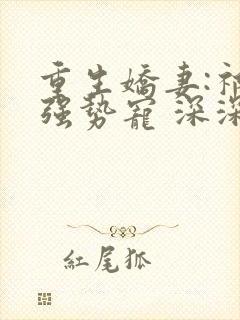 重生嬌妻:
強勢寵 深深
紅尾狐